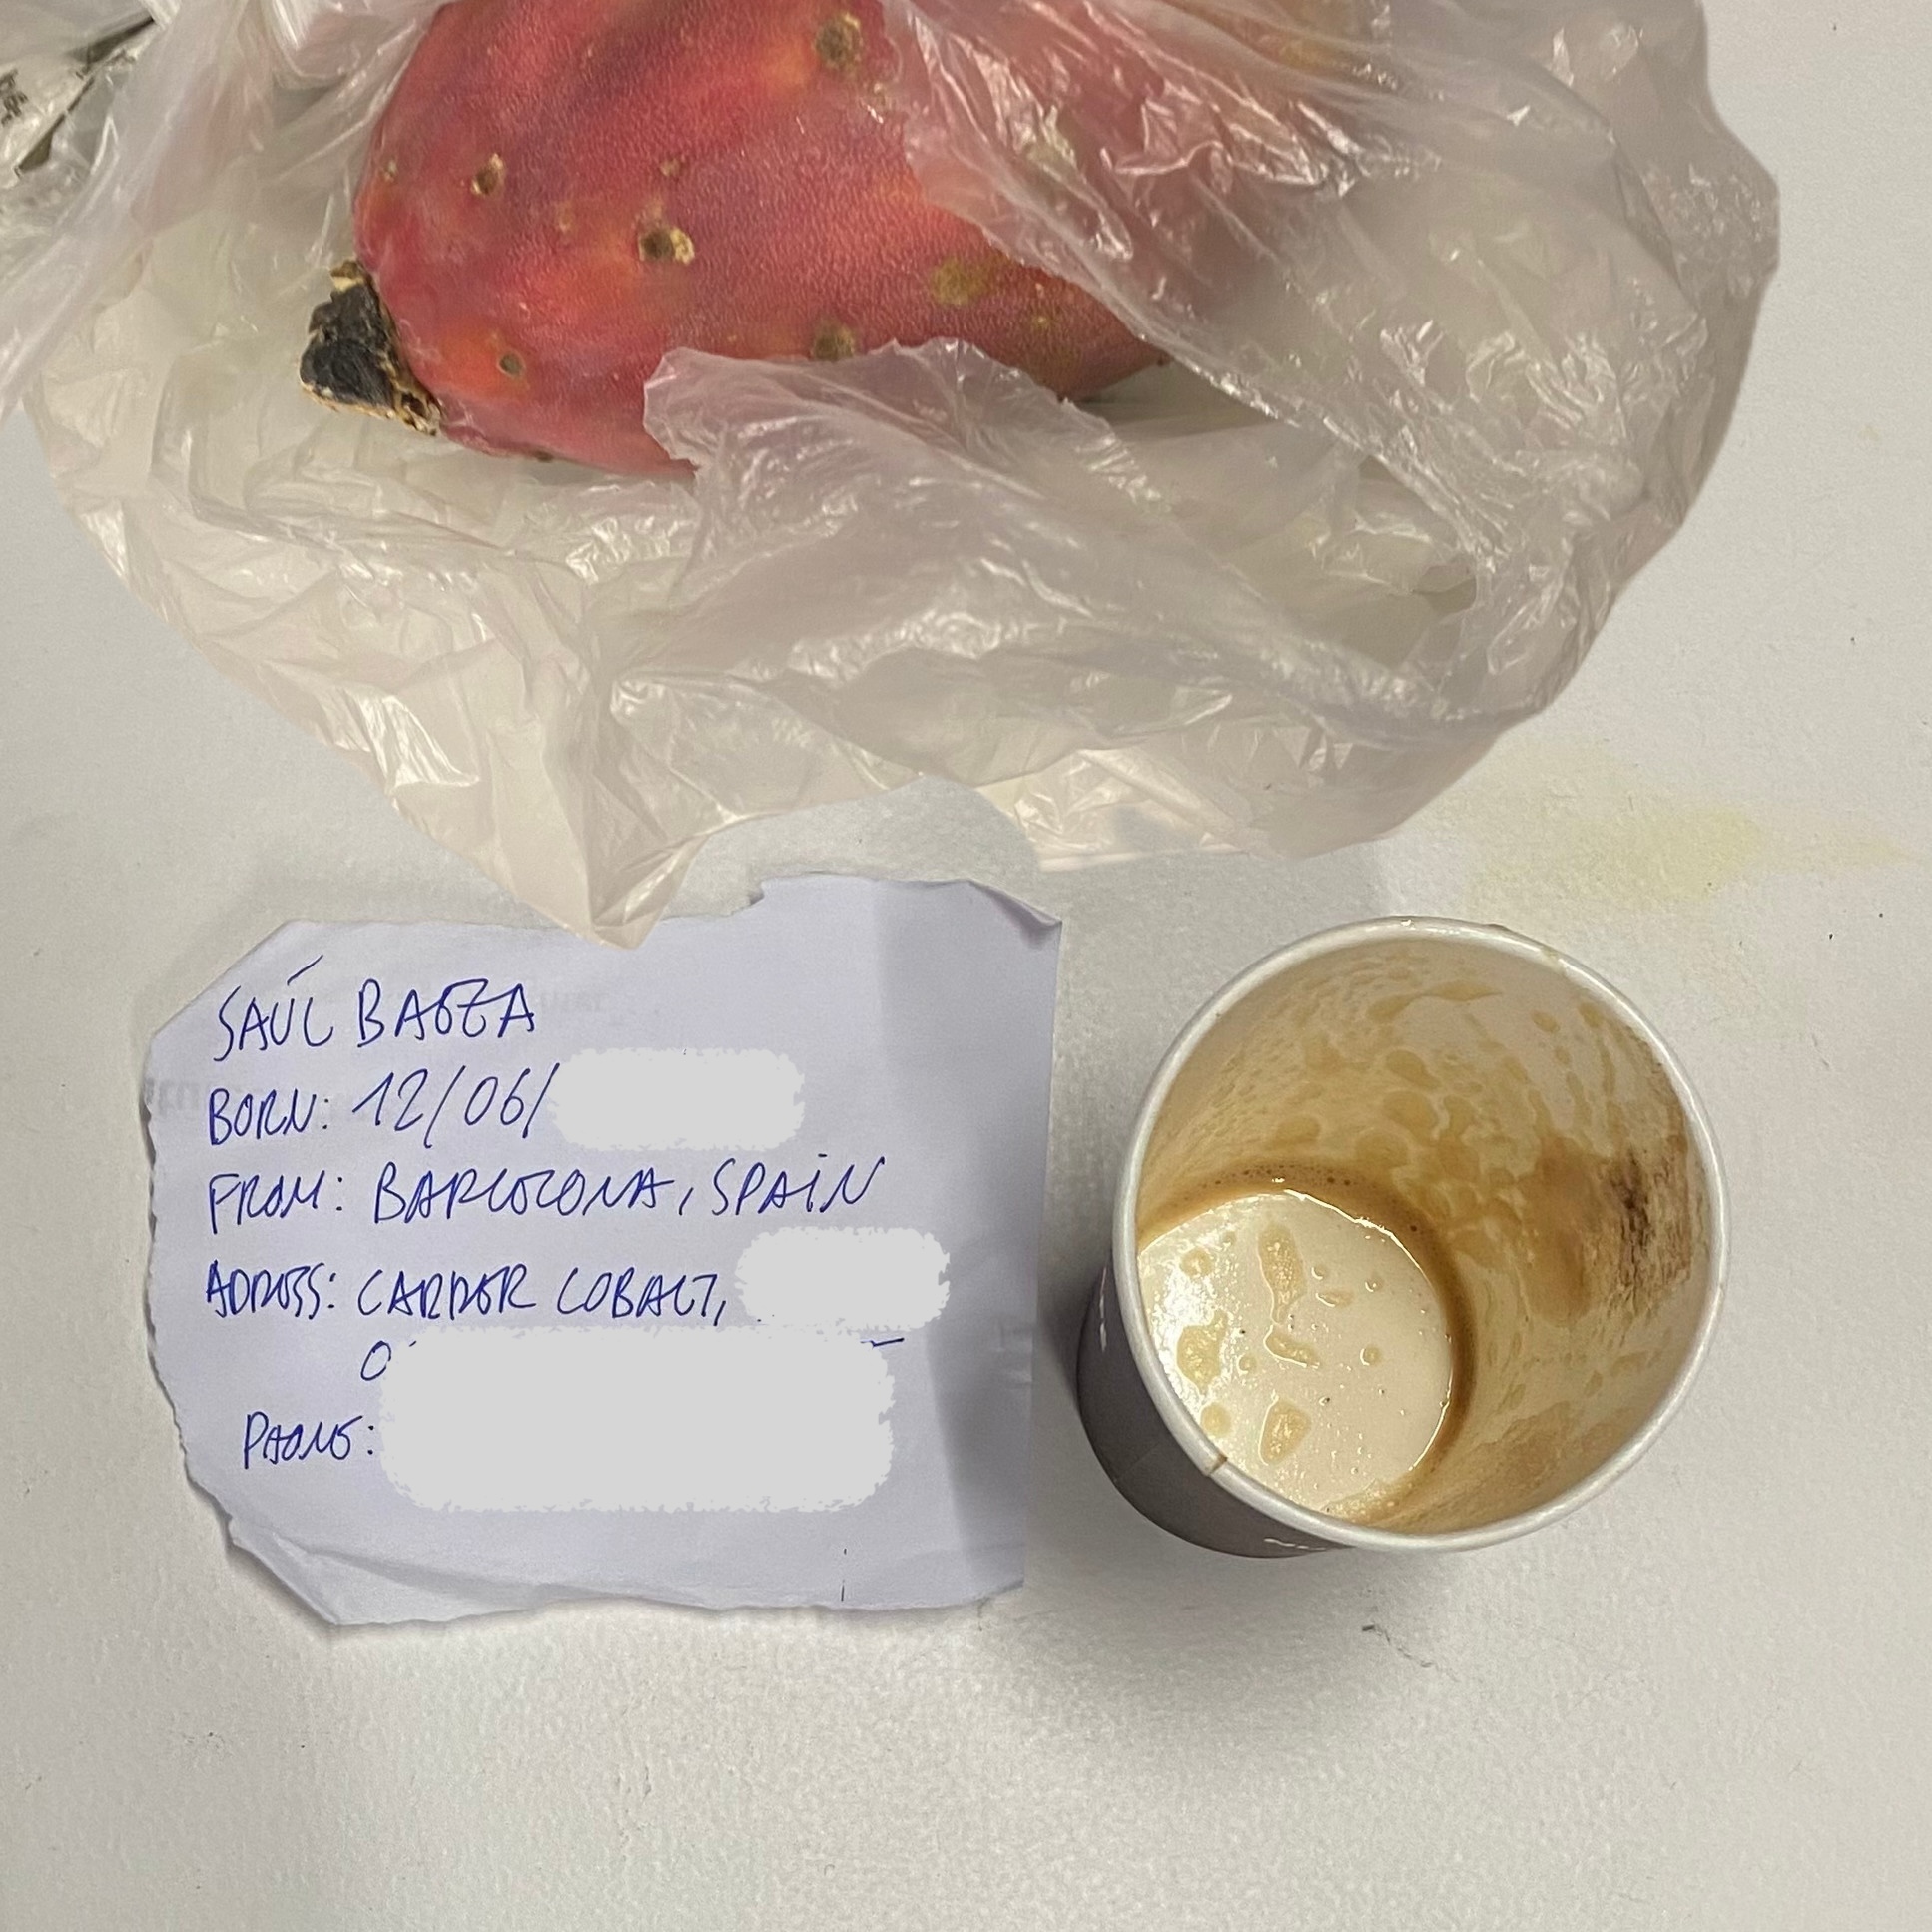 SAÚL BAEZA
BORN: 12/06/
FROM: BARCELONA, SPAIN
ADRESS: CARRER COBALT,
0
PHONE: